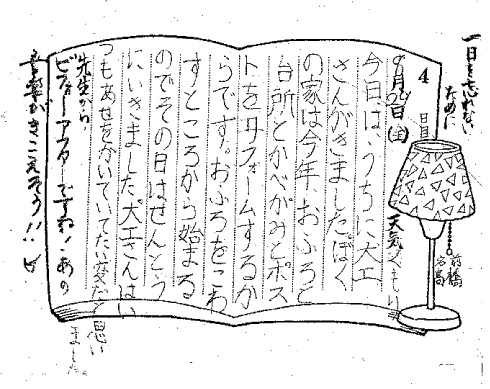 一日を忘れない
ために
4
天気くもり
今日は、うちに大工
さんがきました。ぼく
の家は今年、おふろと
台所とかべがみとポス
トをリフォームするか
らです。おふろをこわ
すところから始まる
のでその日はせんとう
にいきました。大工さんはい
つもあせをかいていてたい変だなと思い
ました。
先生から、
ビフォーアフターですね!あの
音楽がきこえそう!!